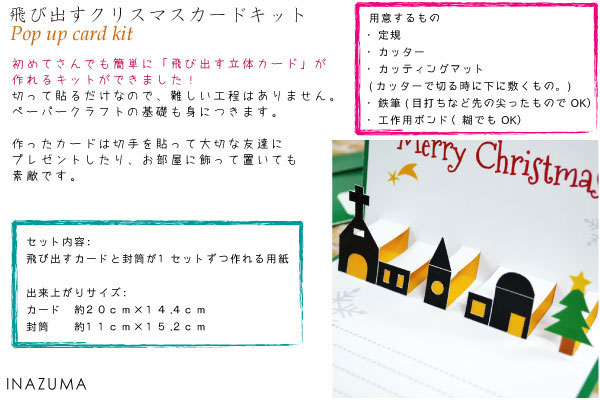 飛び出すクリスマスカードキット
Pop up card kit
初めてさんでも簡単に「飛び出す立体カード」が
作れるキットができました！
切って貼るだけなので、難しい工程はありません。
ペーパークラフトの基礎も身につきます。
作ったカードは切手を貼って大切な友達に
プレゼントしたり、お部屋に飾って置いても
素敵です。
セット内容:
飛び出すカードと封筒が1セットずつ作れる用紙
出来上がりサイズ:
カード 約20cm×14.4cm
封筒 約11cm×15.2cm
INAZUMA
用意するもの
・定規
・カッター
・カッティングマット
(カッターで切る時に下に敷くもの。)
・鉄筆(目打ちなど先の尖ったものでOK)
・工作用ボンド(糊でもOK)
Merry Christmas